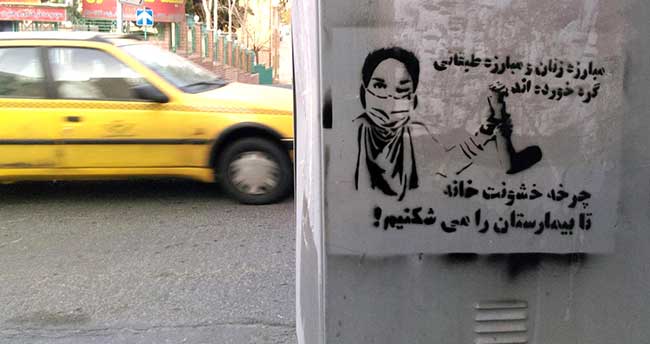 مبارزه زنان و مبارزه طبقاتی
گره خورده اند
چرخه خشونت خانه
تا بیمارستان را می شکنیم!